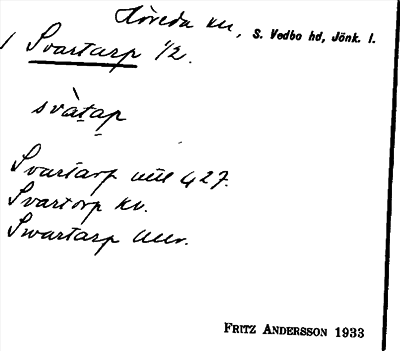 Höreda sn, S. Vedbo hd, Jönk. l.
1 Svartarp 1/2.
svàtap
Svartarp
Svartorp
Swartarp
FRITZ ANDERSSON 1933